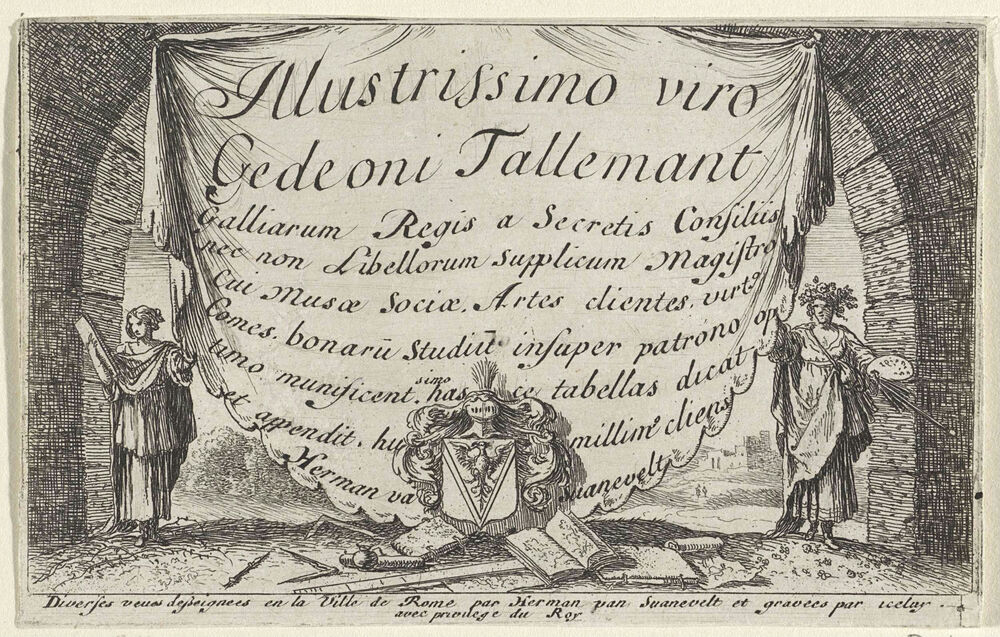 Illustrissimo viro
Gedeoni Tallemant
Galliarum Regis a Secretis Consiliis
nec non Libellorum supplicum Magistro
Cui Musæ Sociæ, Artes clientes, virt9
Comes, bonarū Studiū insuper patrono op
timo munificent.simo hasce tabellas dicat
et appendit, humillime cliens
Herman va suanevelt
Diverses veues desseignees en la Ville de Rome par Herman van Suanevelt et gravees par iceluy.
avec privilege du Roy